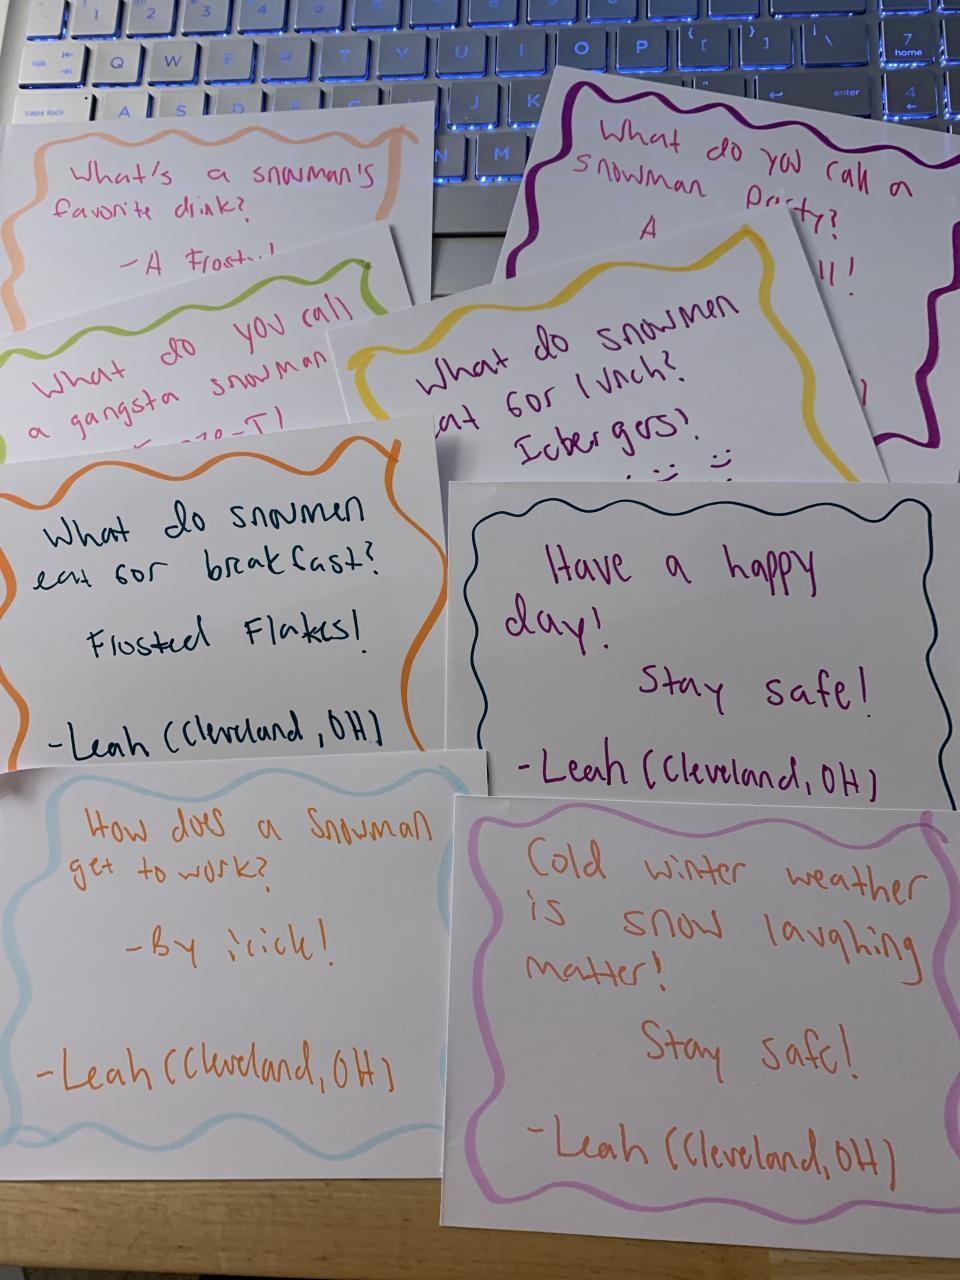 What's a snowman's
favorite drink?
- A
What do you call a
snowman Party?
A
What do you call
a gangsta snowman
What do snowmen
eat for lunch?
Icbergers!
What do snowmen
eat for breakfast?
Frosted Flakes!
-Leah (Cleveland, OH)
Have a happy
day!
Stay safe!
-Leah (Cleveland, OH)
How does a snowman
get to work?
-By icick!
-Leah (Cleveland, OH)
Cold winter weather
is snow laughing
matter!
Stay safe!
-Leah (Cleveland, OH)
tab
Q
W
E
R
T
Y
U
I
O
P
7
home
caps lock
A
S
D
J
K
enter
4
N
M